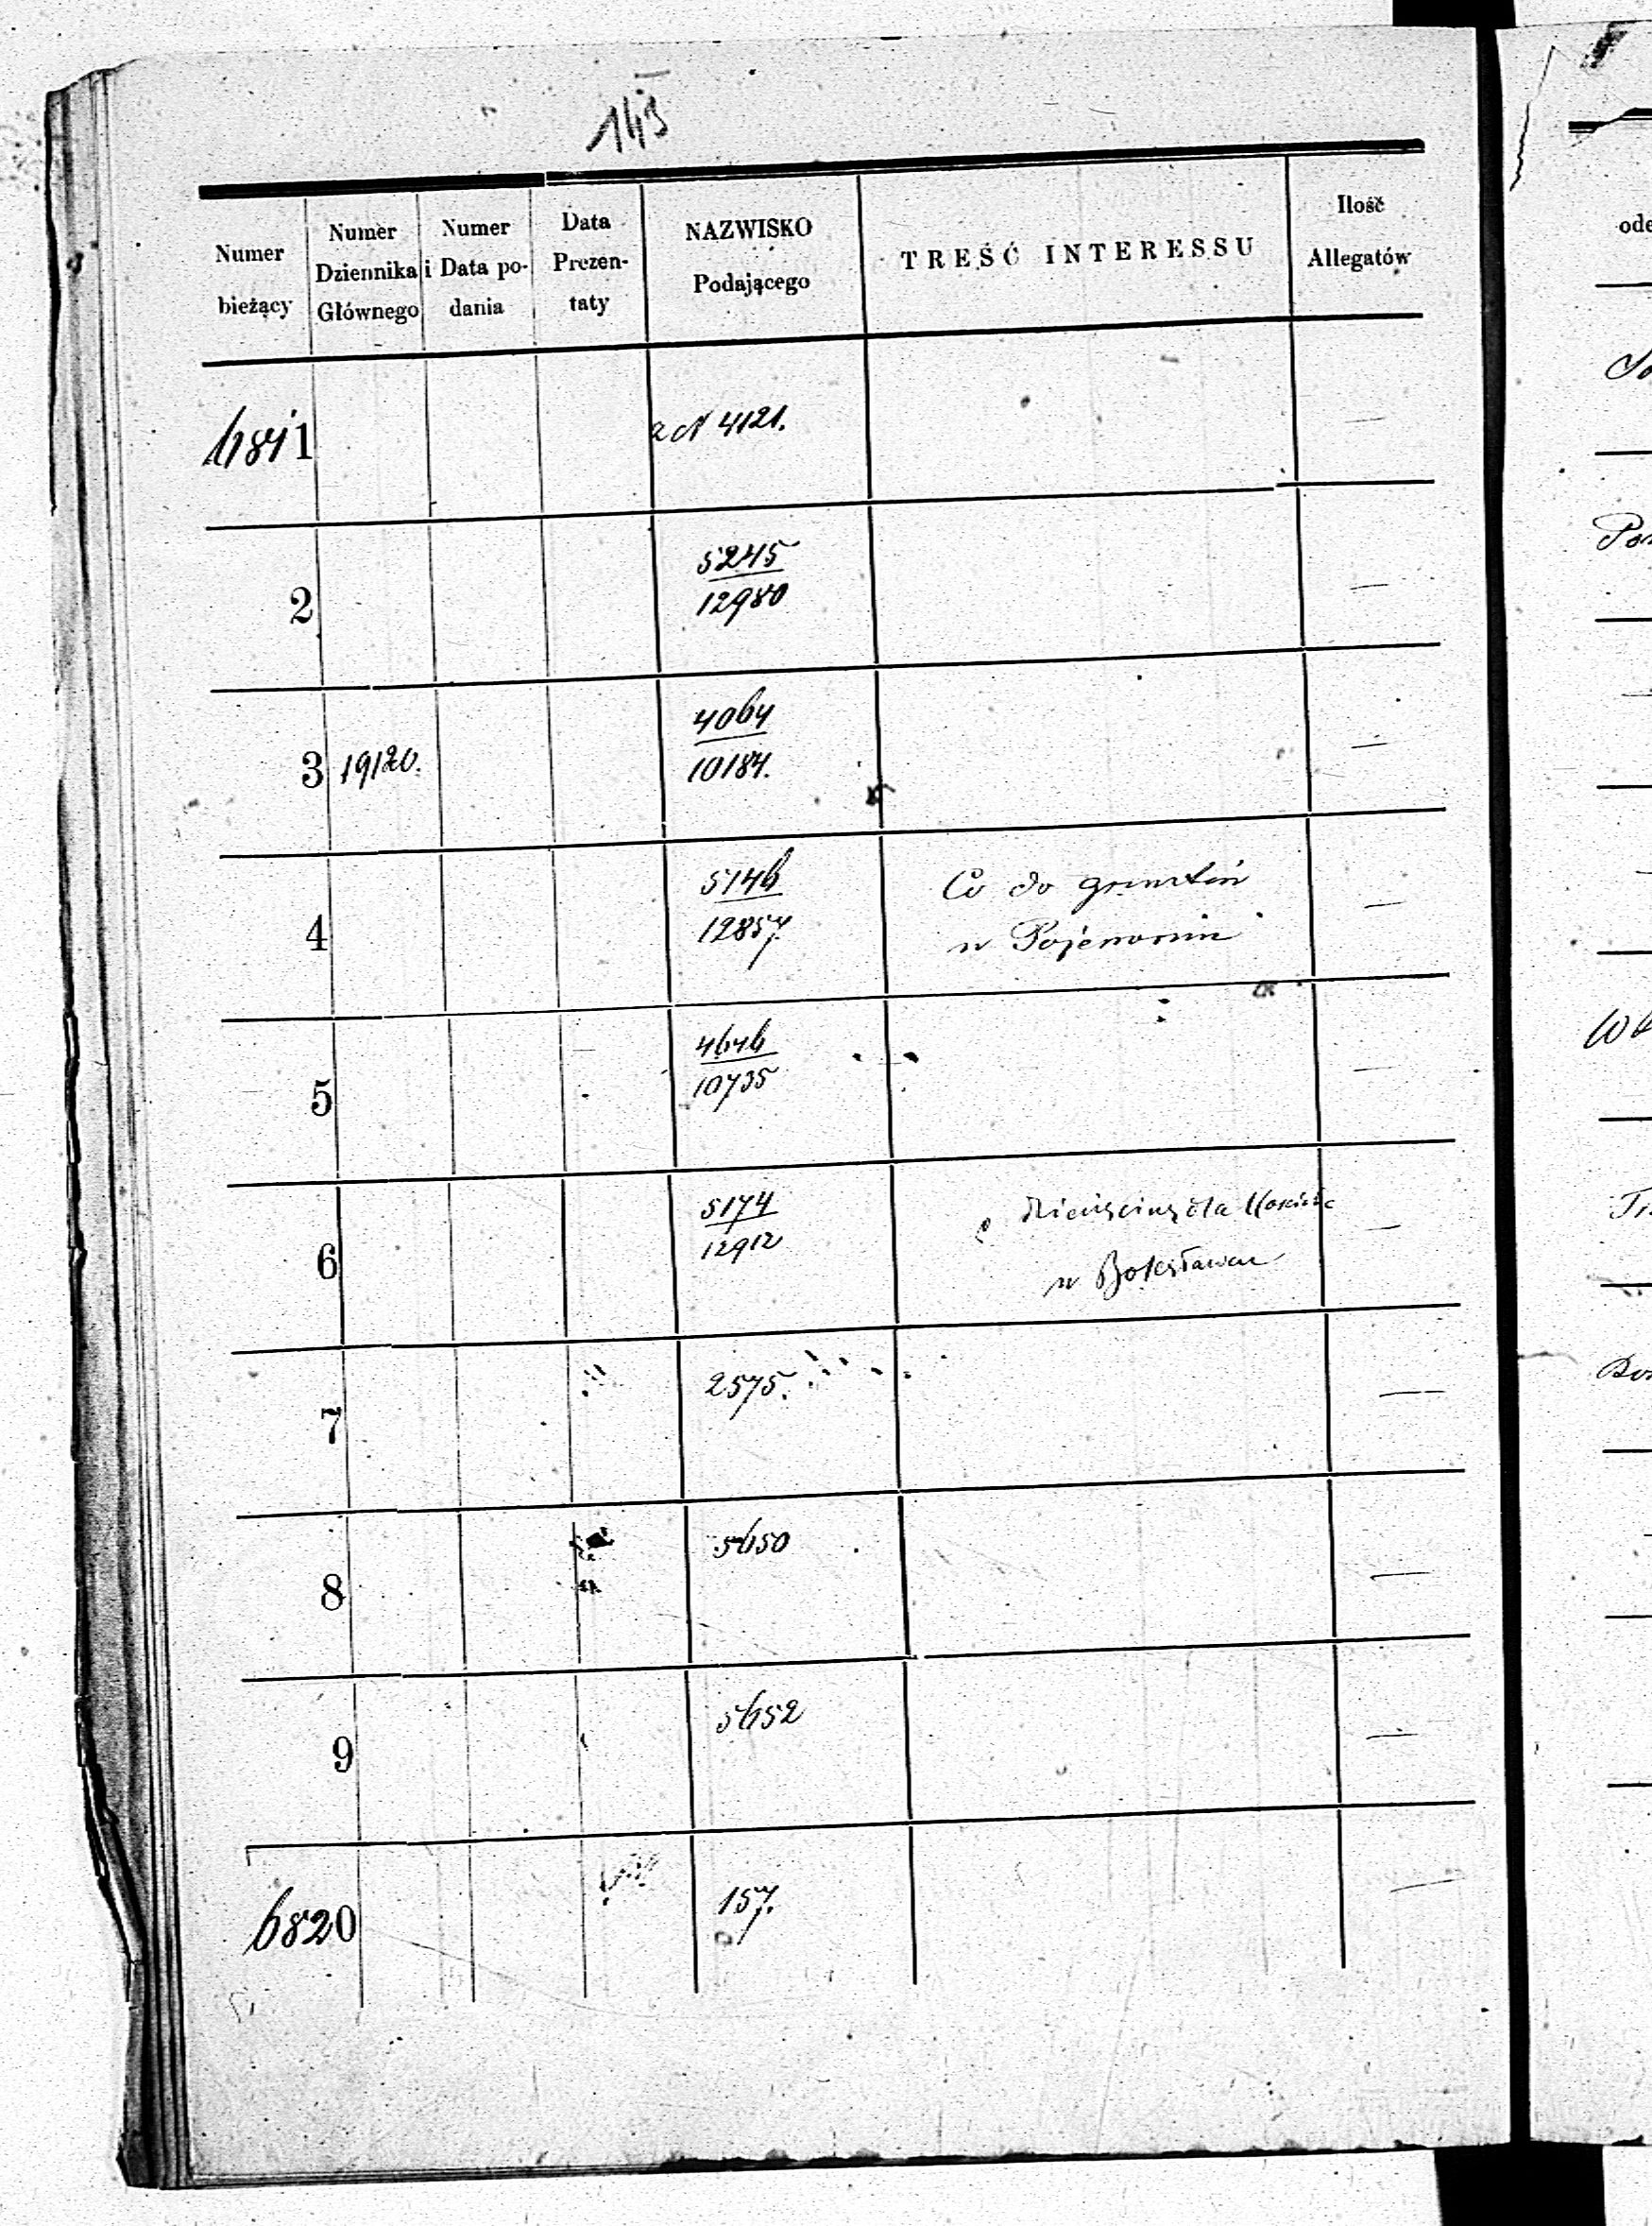 143
Numer bieżący
Numer Dziennika Głównego
Numer i Data podania
Data Prezentaty
NAZWISKO Podającego
TREŚĆ INTERESSU
Ilość Allegatów
6811
4121.
2
5245
12980
3
19120.
4064
10184.
4
5146
12857.
Co do gruntów
w
5
4646
10735
6
5174
12912
w Bolesławcu
7
2575.
8
5650
9
5652
6820
157.